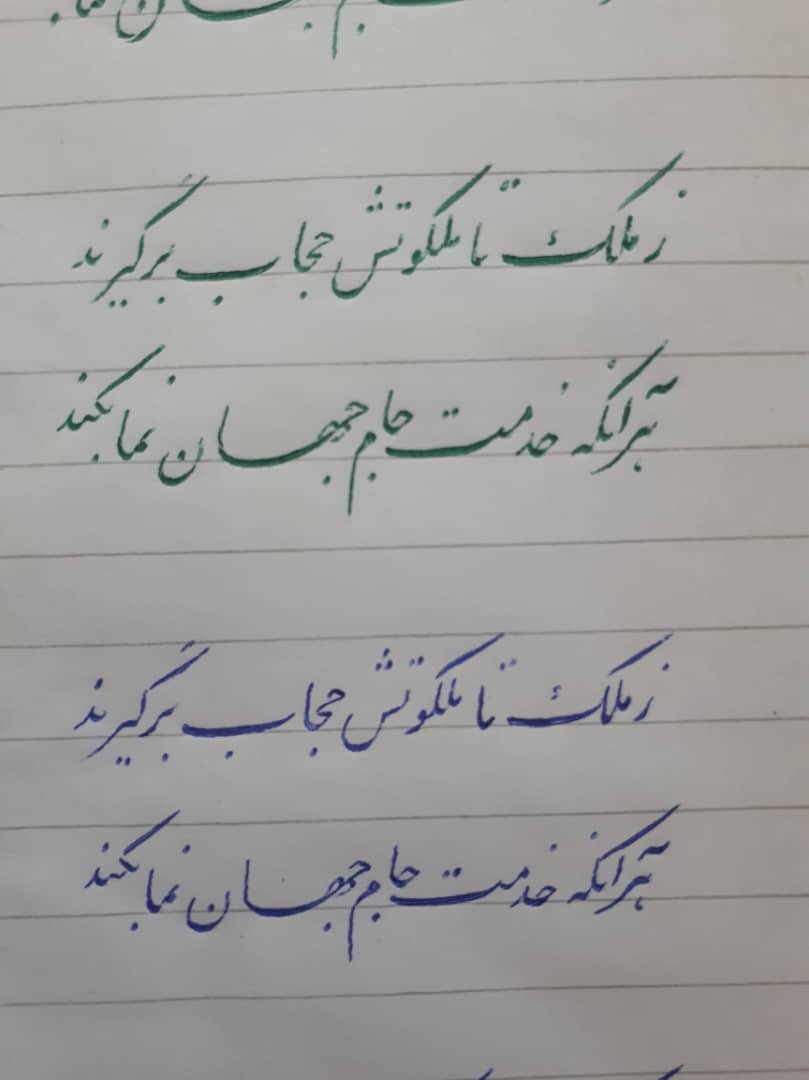 ز ملک تا ملکوتش حجاب برگیرند
هرآنکه خدمت جام جهان نما بکند
ز ملک تا ملکوتش حجاب برگیرند
هرآنکه خدمت جام جهان نما بکند